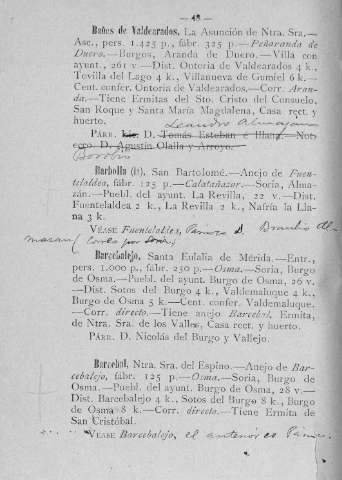 — 48 —
Bañes de Valdearados. La Asunción de Ntra. Sra.—
Asc., pers. 1.425 p., fábr. 325 p.—Peñaranda de
Duero.—Burgos, Aranda de Duero.—Villa con
ayunt., 261 v—Dist. Ontoria de Valdearados 4 k.,
Tovilla del Lago 4 k., Villanueva de Gumiel 6 k.—
Cent. confer. Ontoria de Valdearados.—Corr. Aran-
da.—Tiene Ermitas del Sto. Cristo del Consuelo,
San Roque y Santa María Magdalena, Casa rect. y
huerto.
Leandro
PÁRR. Lic. D. Tomás Esteban é Illana.—Not
ecco. D. Agustín Olalla y Arroyo.
Borobio
Barbolla (la), San Bartolomé.—Anejo de Fuen-
telaldea, fábr. 125 p.—Calatañazor.—Soria, Alma-
zán.—Puebl. del ayunt. La Revilla, 22 v.—Dist.
Fuentelaldea 2 k., La Revilla 2 k., Nafría la Lla-
na 3 k.
VÉASE Fuentelaldea, Párroco D. Braulio Al-
mazan
Barcebalejo, Santa Eulalia de Mérida.—Entr.,
pers. 1.000 p., fábr. 250 p.—Osma.—Soria, Burgo
de Osma.—Puebl. del ayunt. Burgo de Osma, 26 v.
—Dist. Sotos del Burgo 4 k., Valdemaluque 4 k.,
Burgo de Osma 5 k.—Cent. confer. Valdemaluque.
—Corr. directo.—Tiene anejo Barcebal, Ermita,
de Ntra. Sra. de los Valles, Casa rect. y huerto.
PÁRR. D. Nicolás del Burgo y Vallejo.
Barcebal, Ntra. Sra. del Espino.—Anejo de Bar-
cebalejo, fábr. 125 p.—Osma.—Soria, Burgo de
Osma.—Puebl. del ayunt. Burgo de Osma, 28 v.—
Dist. Barcebalejo 4 k., Sotos del Burgo 8 k., Burgo
de Osma 8 k.—Corr. directo.—Tiene Ermita de
San Cristóbal.
VÉASE Barcebalejo, el anterior es Párroco